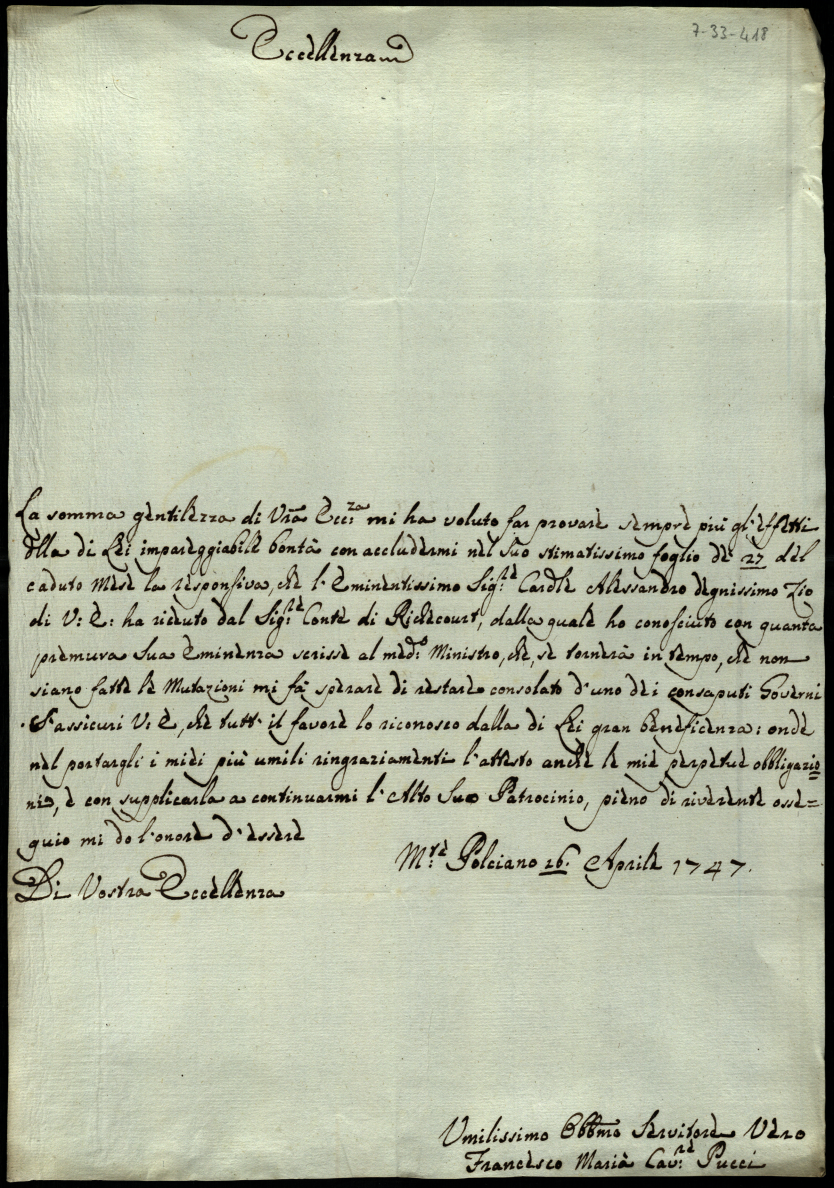 7-33-418
Eccellenza
La somma gentilezza di Vra Ecc:za mi ha voluto far provare sempre più gl'effetti
della di Lei impareggiabile bontà con accludermi nel suo stimatissimo foglio de 27 del
caduto Mese la responsiva, che l'Eminentissimo Sig:re Cardle Alessandro degnissimo Zio
di V: E: ha riceuto dal Sig:re Conte di Richecourt, dalla quale ho conosciuto con quanta
premura Sua Eminenza scrisse al med:o Ministro, che, se tornerà in tempo, che non
siano fatte le Mutazioni mi fà sperare di restare consolato d'uno dei consaputi Governi
S'assicuri V: E, che tutt'il favore lo riconosco dalla di Lei gran beneficenza: onde
nel portargli i miei più umili ringraziamenti l'attesto anche le mie perpetue obbligazio=
ni, e con supplicarla a continuarmi l'Alto Suo Patrocinio, pieno di riverente osse=
quio mi do l'onore d'essere
M:re Polciano 26. Aprile 1747.
Di Vostra Eccellenza
Umilissimo Obbmo Servitore Vero
Francesco Maria Cav:re Pucci